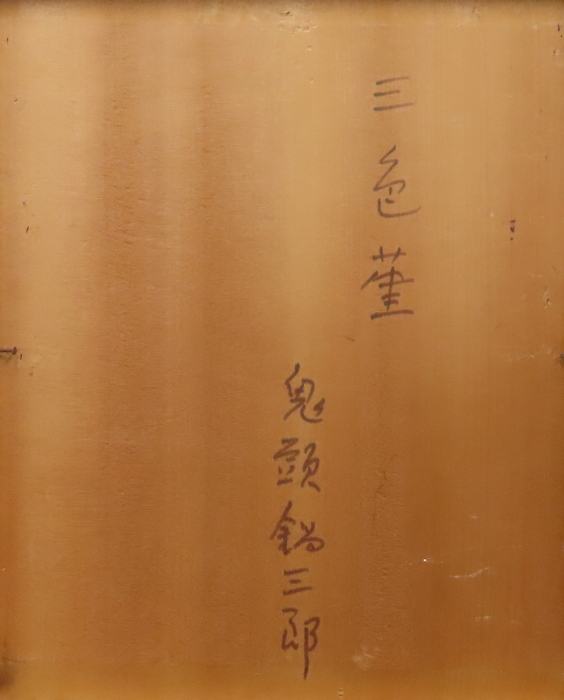 三色菫
鬼頭鍋三郎